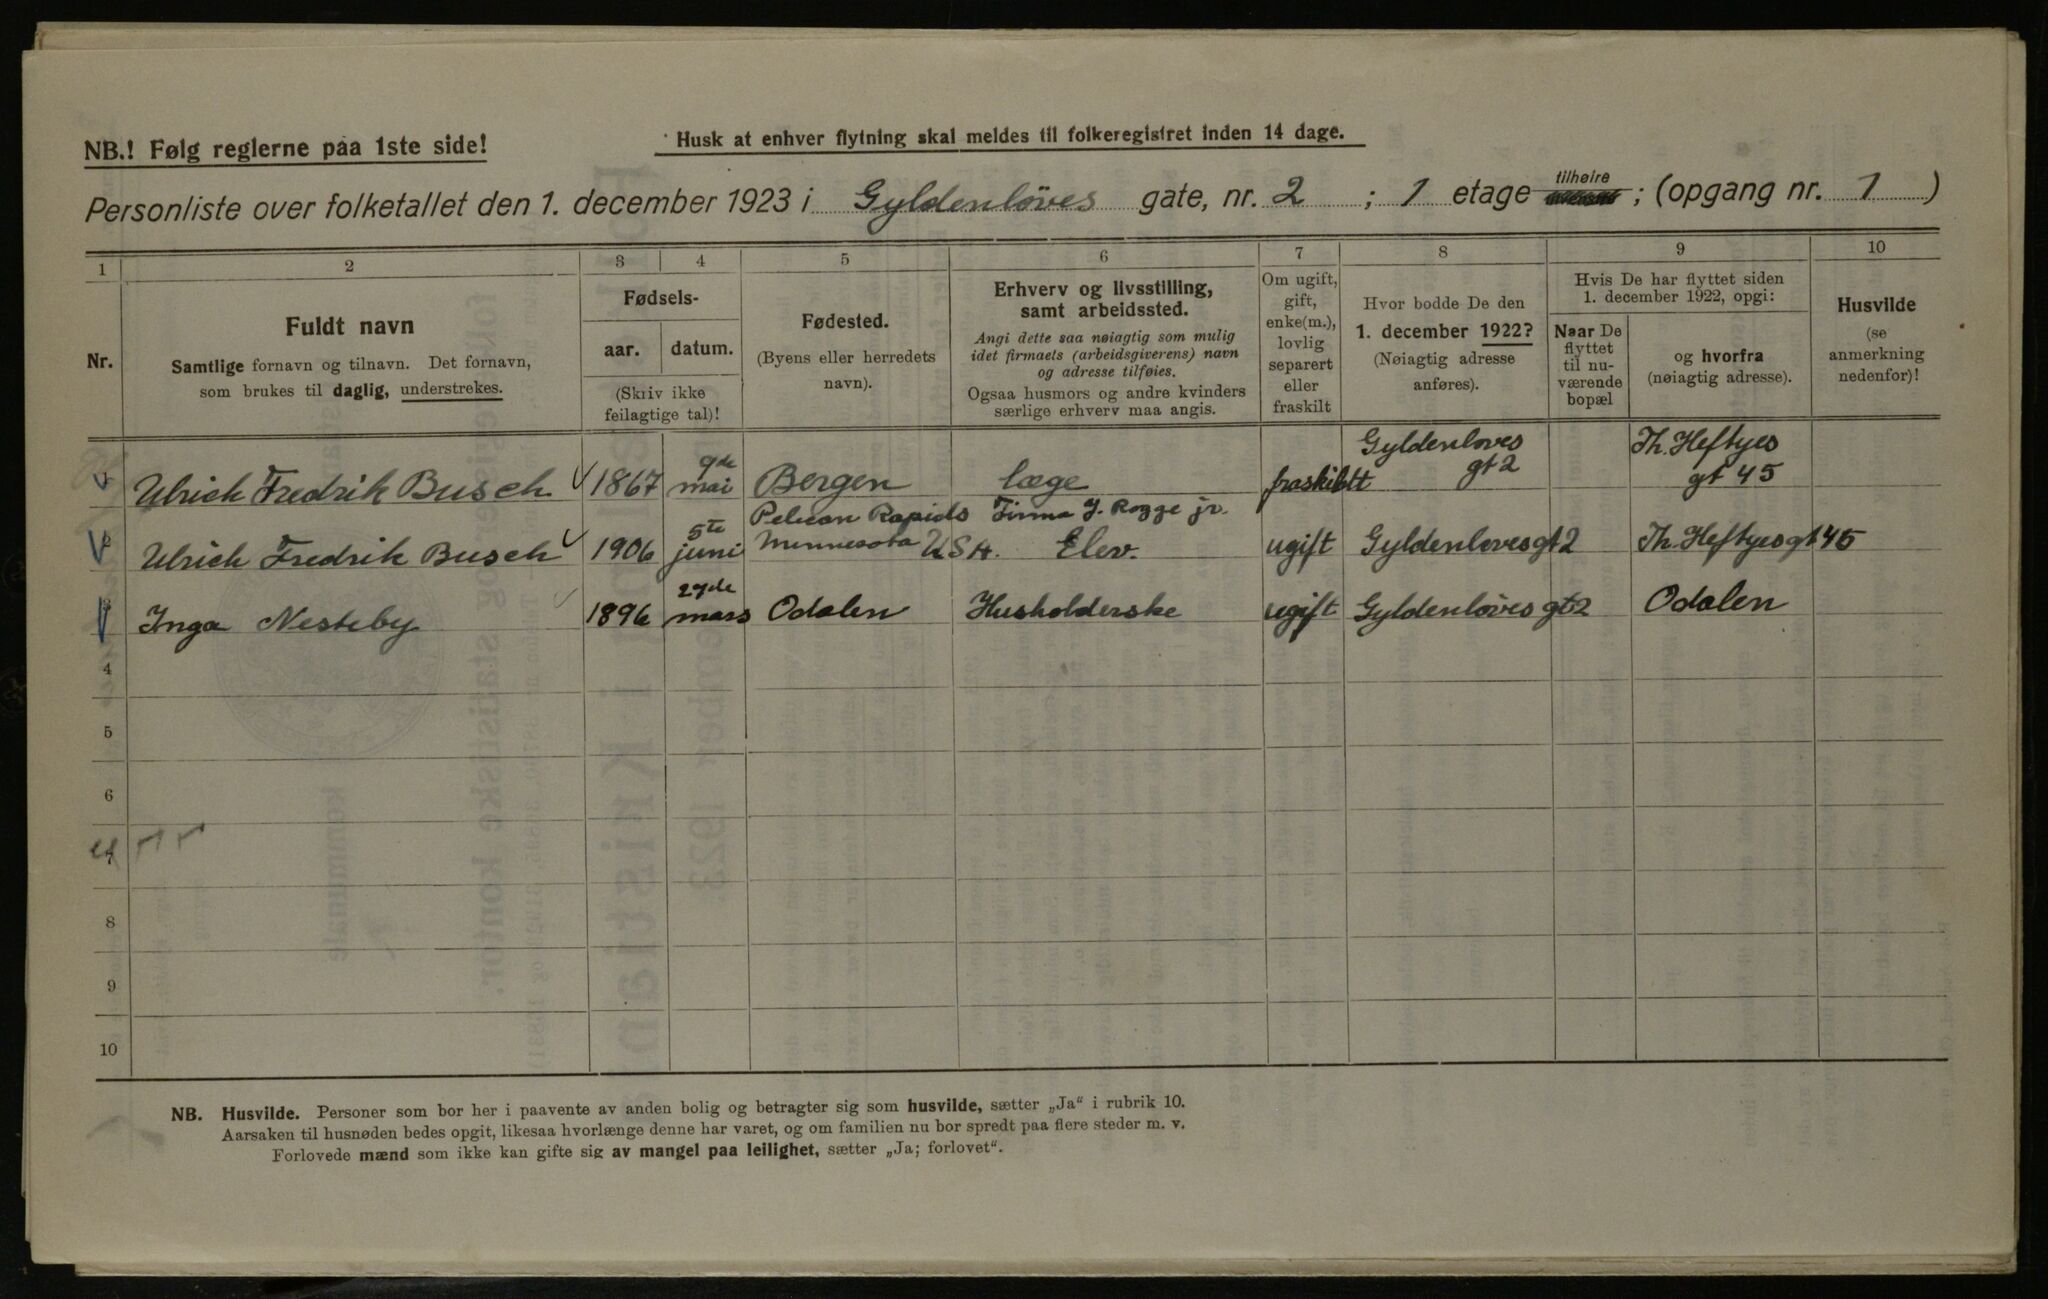 NB.! Følg reglerne paa 1ste side!
Husk at enhver flytning skal meldes til folkeregistret inden 14 dage.
Personliste over folketallet den 1. december 1923 i Gyldenløves gate, nr. 2 ; 1 etage tilhøire ; (opgang nr. 1 )
1 2 3 4 5 6 7 8 9 10
Nr.
Fuldt navn
Samtlige fornavn og tilnavn. Det fornavn,
som brukes til daglig, understrekes.
Fødsels-
aar. datum.
(Skriv ikke
feilagtige tal)!
Fødested.
(Byens eller herredets
navn).
Erhverv og livsstilling,
samt arbeidssted.
Angi dette saa nøiagtig som mulig
idet firmaets (arbeidsgiverens) navn
og adresse tilføies.
Ogsaa husmors og andre kvinders
særlige erhverv maa angis.
Om ugift,
gift,
enke(m.),
lovlig
separert
eller
fraskilt
Hvor bodde De den
1. december 1922?
(Nøiagtig adresse
anføres).
Hvis De har flyttet siden
1. december 1922, opgi:
Naar De
flyttet
til nu-
værende
bopæl
og hvorfra
(nøiagtig adresse).
Husvilde
(se
anmerkning
nedenfor)!
1 Ulrich Fredrik Busch 1867 9de mai Bergen læge fraskilt Gyldenløves gt 2 Th. Heftyes gt 45
2 Ulrich Fredrik Busch 1906 5te juni Pelican Rapids Minnesota U.S.A. Firma J. Rogge jr. Elev. ugift Gyldenløves gt 2 Th. Heftyes gt 45
3 Inga Nesteby 1896 29de mars Odalen Husholderske ugift Gyldenløves gt 2 Odalen
4
5
6
7
8
9
10
NB. Husvilde. Personer som bor her i paavente av anden bolig og betragter sig som husvilde, sætter „Ja“ i rubrik 10.
Aarsaken til husnøden bedes opgit, likesaa hvorlænge denne har varet, og om familien nu bor spredt paa flere steder m. v.
Forlovede mænd som ikke kan gifte sig av mangel paa leilighet, sætter „Ja; forlovet“.